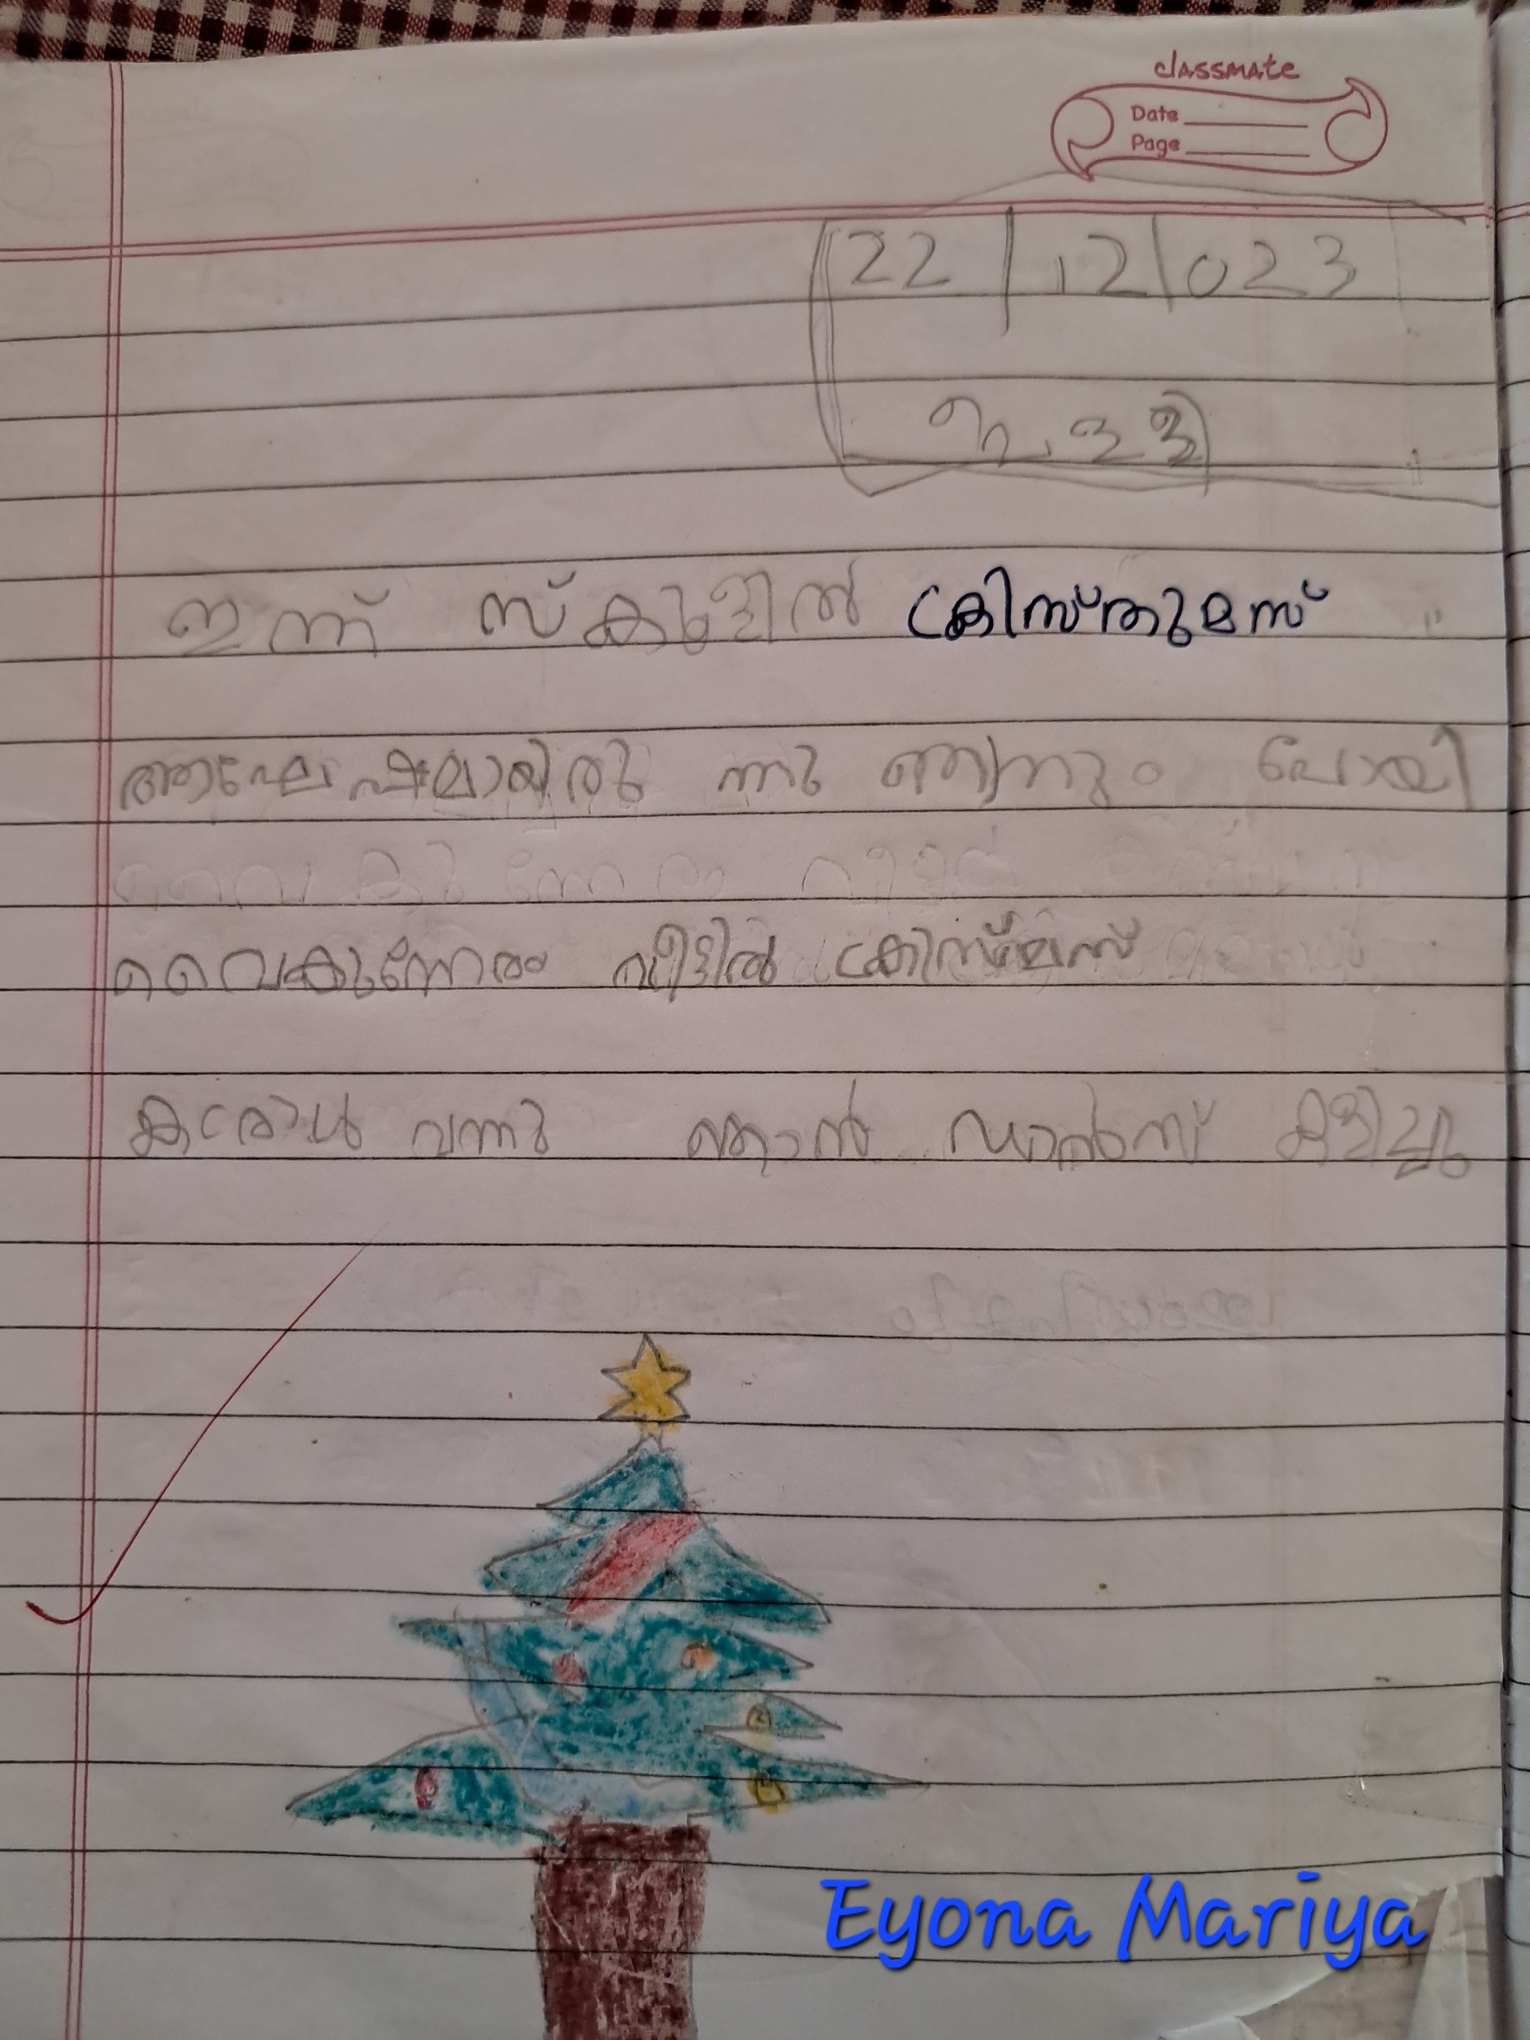 classmate
Date
Page
22/12/023
വെള്ളി
ഇന്ന് സ്കൂളിൽ ക്രിസ്തുമസ്
ആഘേഷമായിരു ന്നു ഞാനും പോയി
വൈകുന്നേരം വീട്ടിൽ ക്രിസ്മസ്
കരോൾ വന്നു ഞാൻ ഡാൻസ് കളിച്ചു
Eyona Mariya